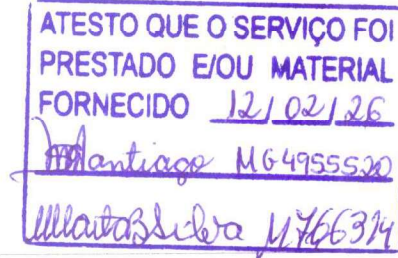 ATESTO QUE O SERVIÇO FOI
PRESTADO E/OU MATERIAL
FORNECIDO 12/02/26
MG4955520
Silva M766314